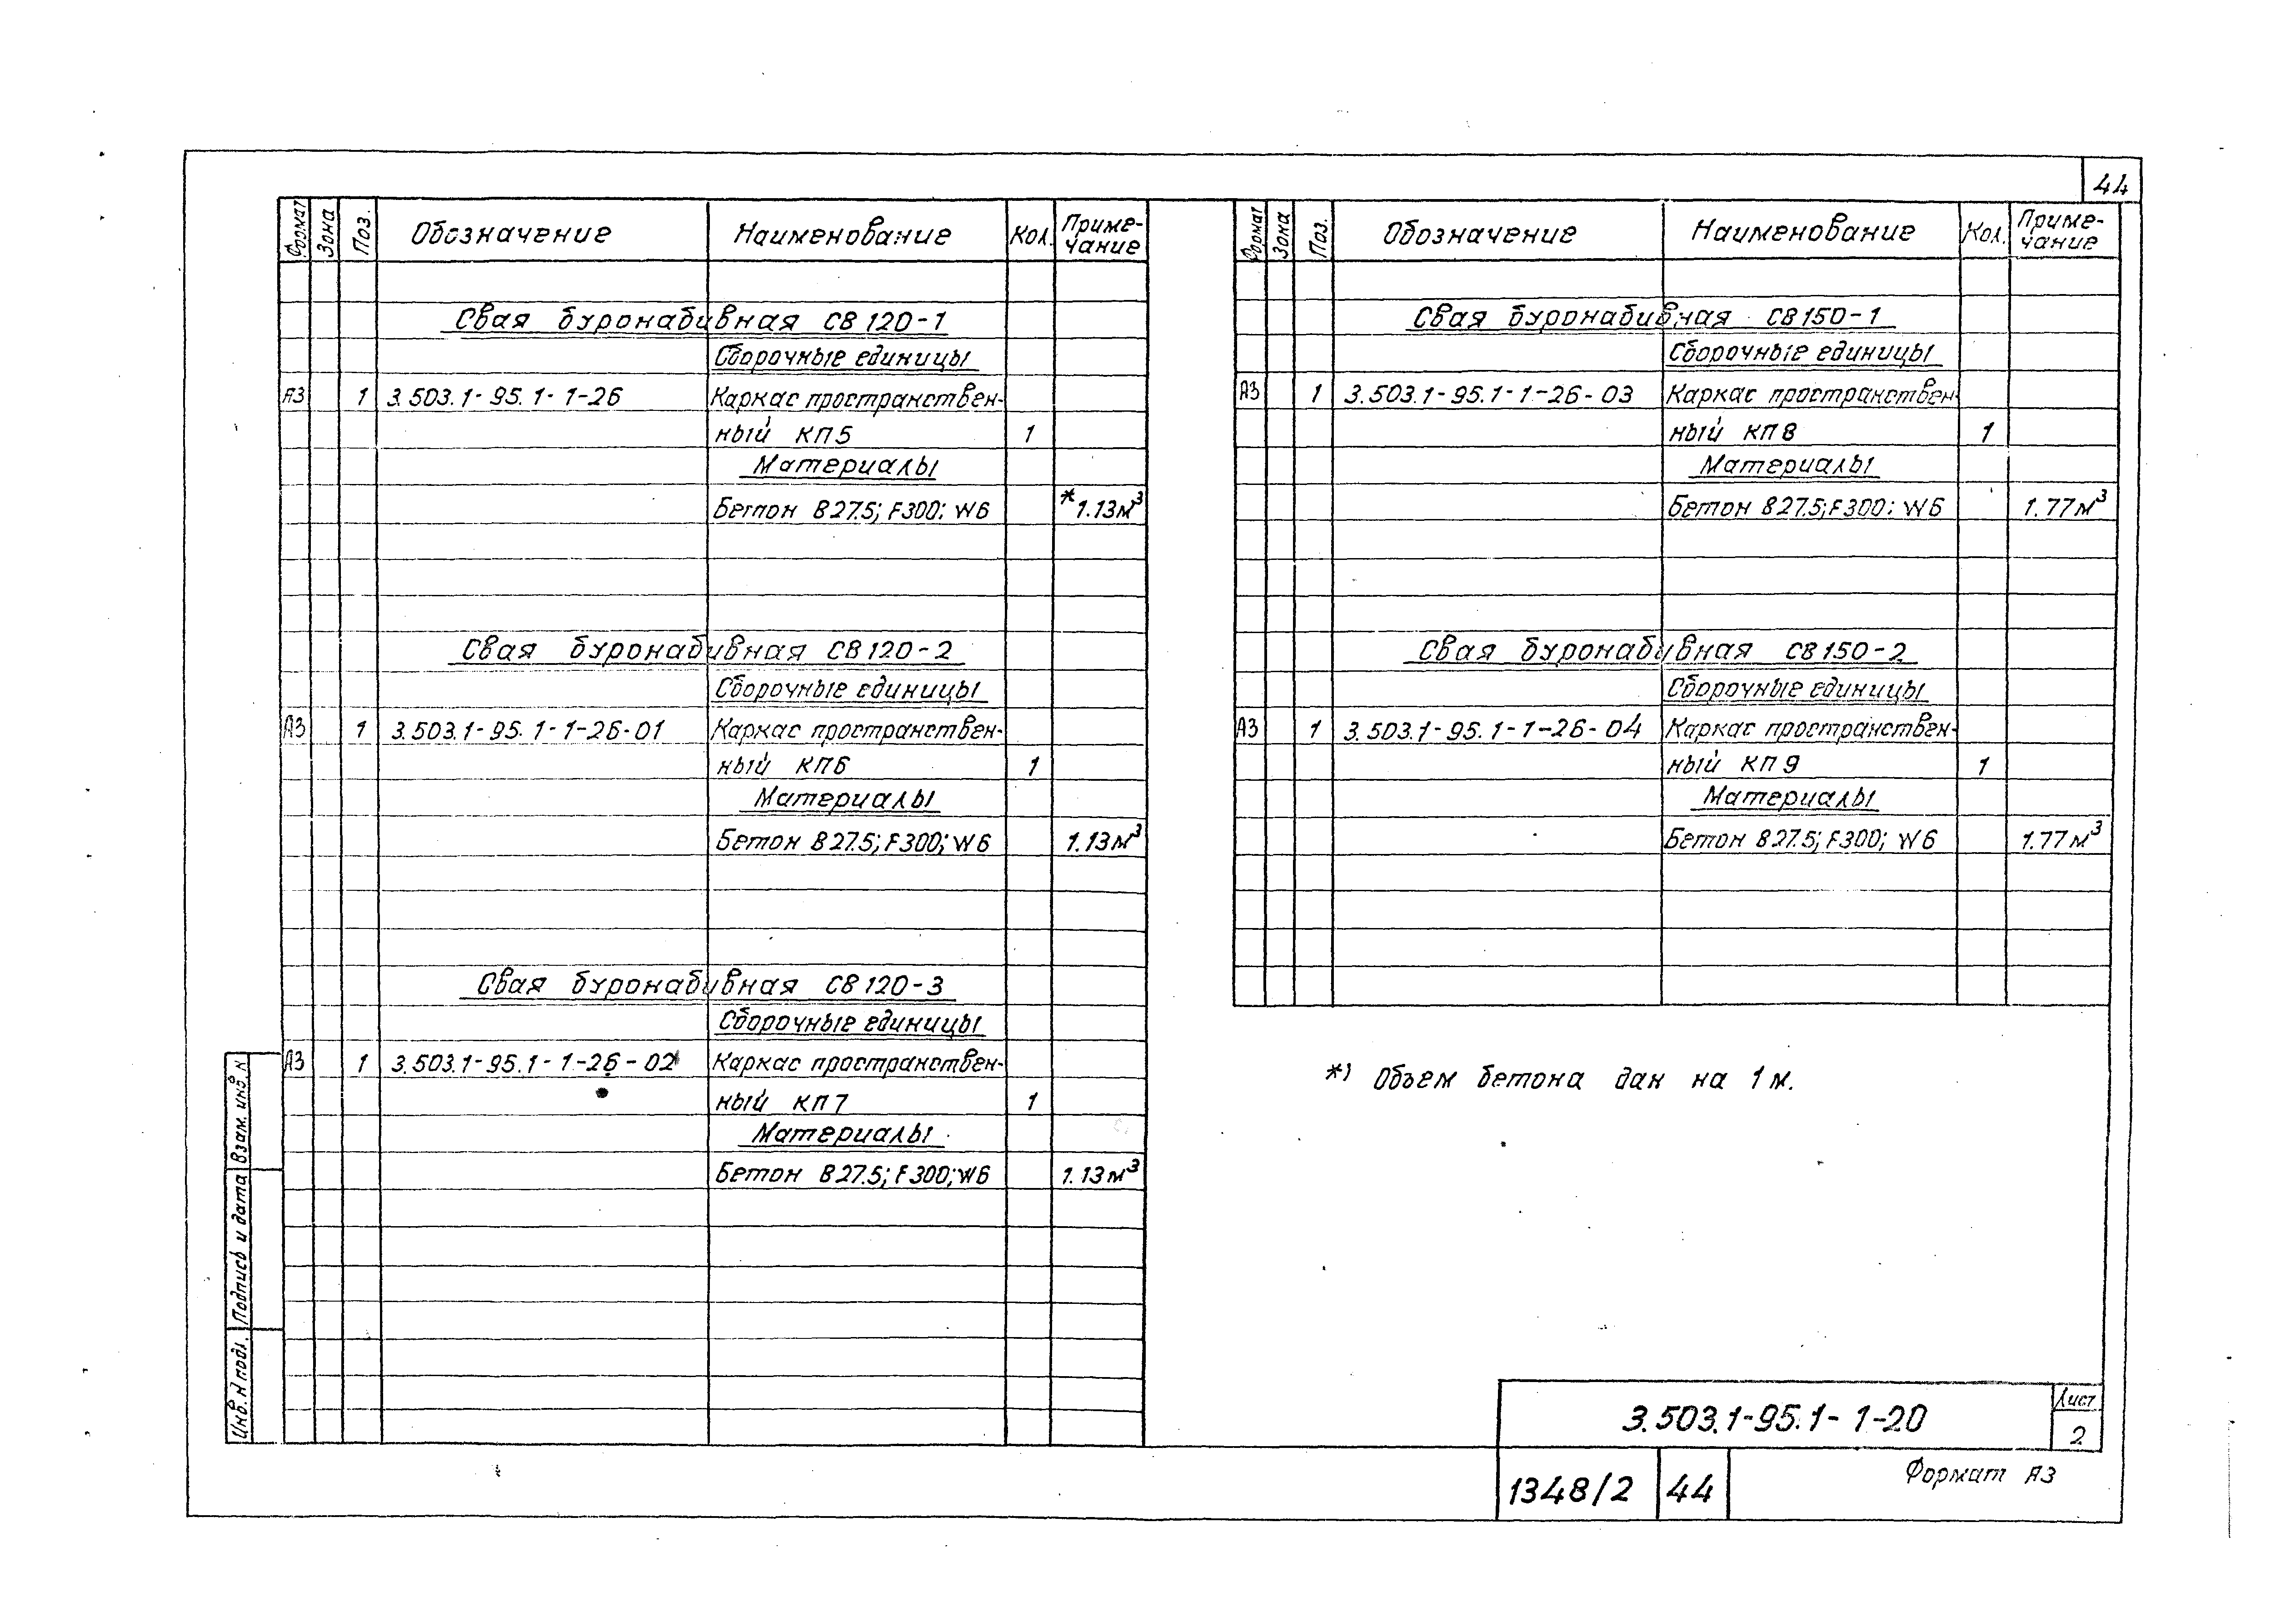 44
Формат Зона Поз. Обозначение Наименование Кол. Приме-
чание
Свая буронабивная СВ 120-1
Сборочные единицы
А3 1 3.503.1-95.1-1-26 Каркас пространствен-
ный КП5 1
Материалы
Бетон В27.5; F300; W6 *1.13м³
Свая буронабивная СВ 120-2
Сборочные единицы
А3 1 3.503.1-95.1-1-26-01 Каркас пространствен-
ный КП6 1
Материалы
Бетон В27.5; F300; W6 1.13м³
Свая буронабивная СВ 120-3
Сборочные единицы
А3 1 3.503.1-95.1-1-26-02 Каркас пространствен-
ный КП7 1
Материалы
Бетон В27.5; F300; W6 1.13м³
Формат Зона Поз. Обозначение Наименование Кол. Приме-
чание
Свая буронабивная СВ 150-1
Сборочные единицы
А3 1 3.503.1-95.1-1-26-03 Каркас пространствен-
ный КП8 1
Материалы
Бетон В27.5; F300; W6 1.77м³
Свая буронабивная СВ 150-2
Сборочные единицы
А3 1 3.503.1-95.1-1-26-04 Каркас пространствен-
ный КП9 1
Материалы
Бетон В27.5; F300; W6 1.77м³
*) Объем бетона дан на 1м.
Инв.Nподл. Подпись и дата Взам. инв.N
3.503.1-95.1-1-20
Лист
2
1348/2 44
Формат А3